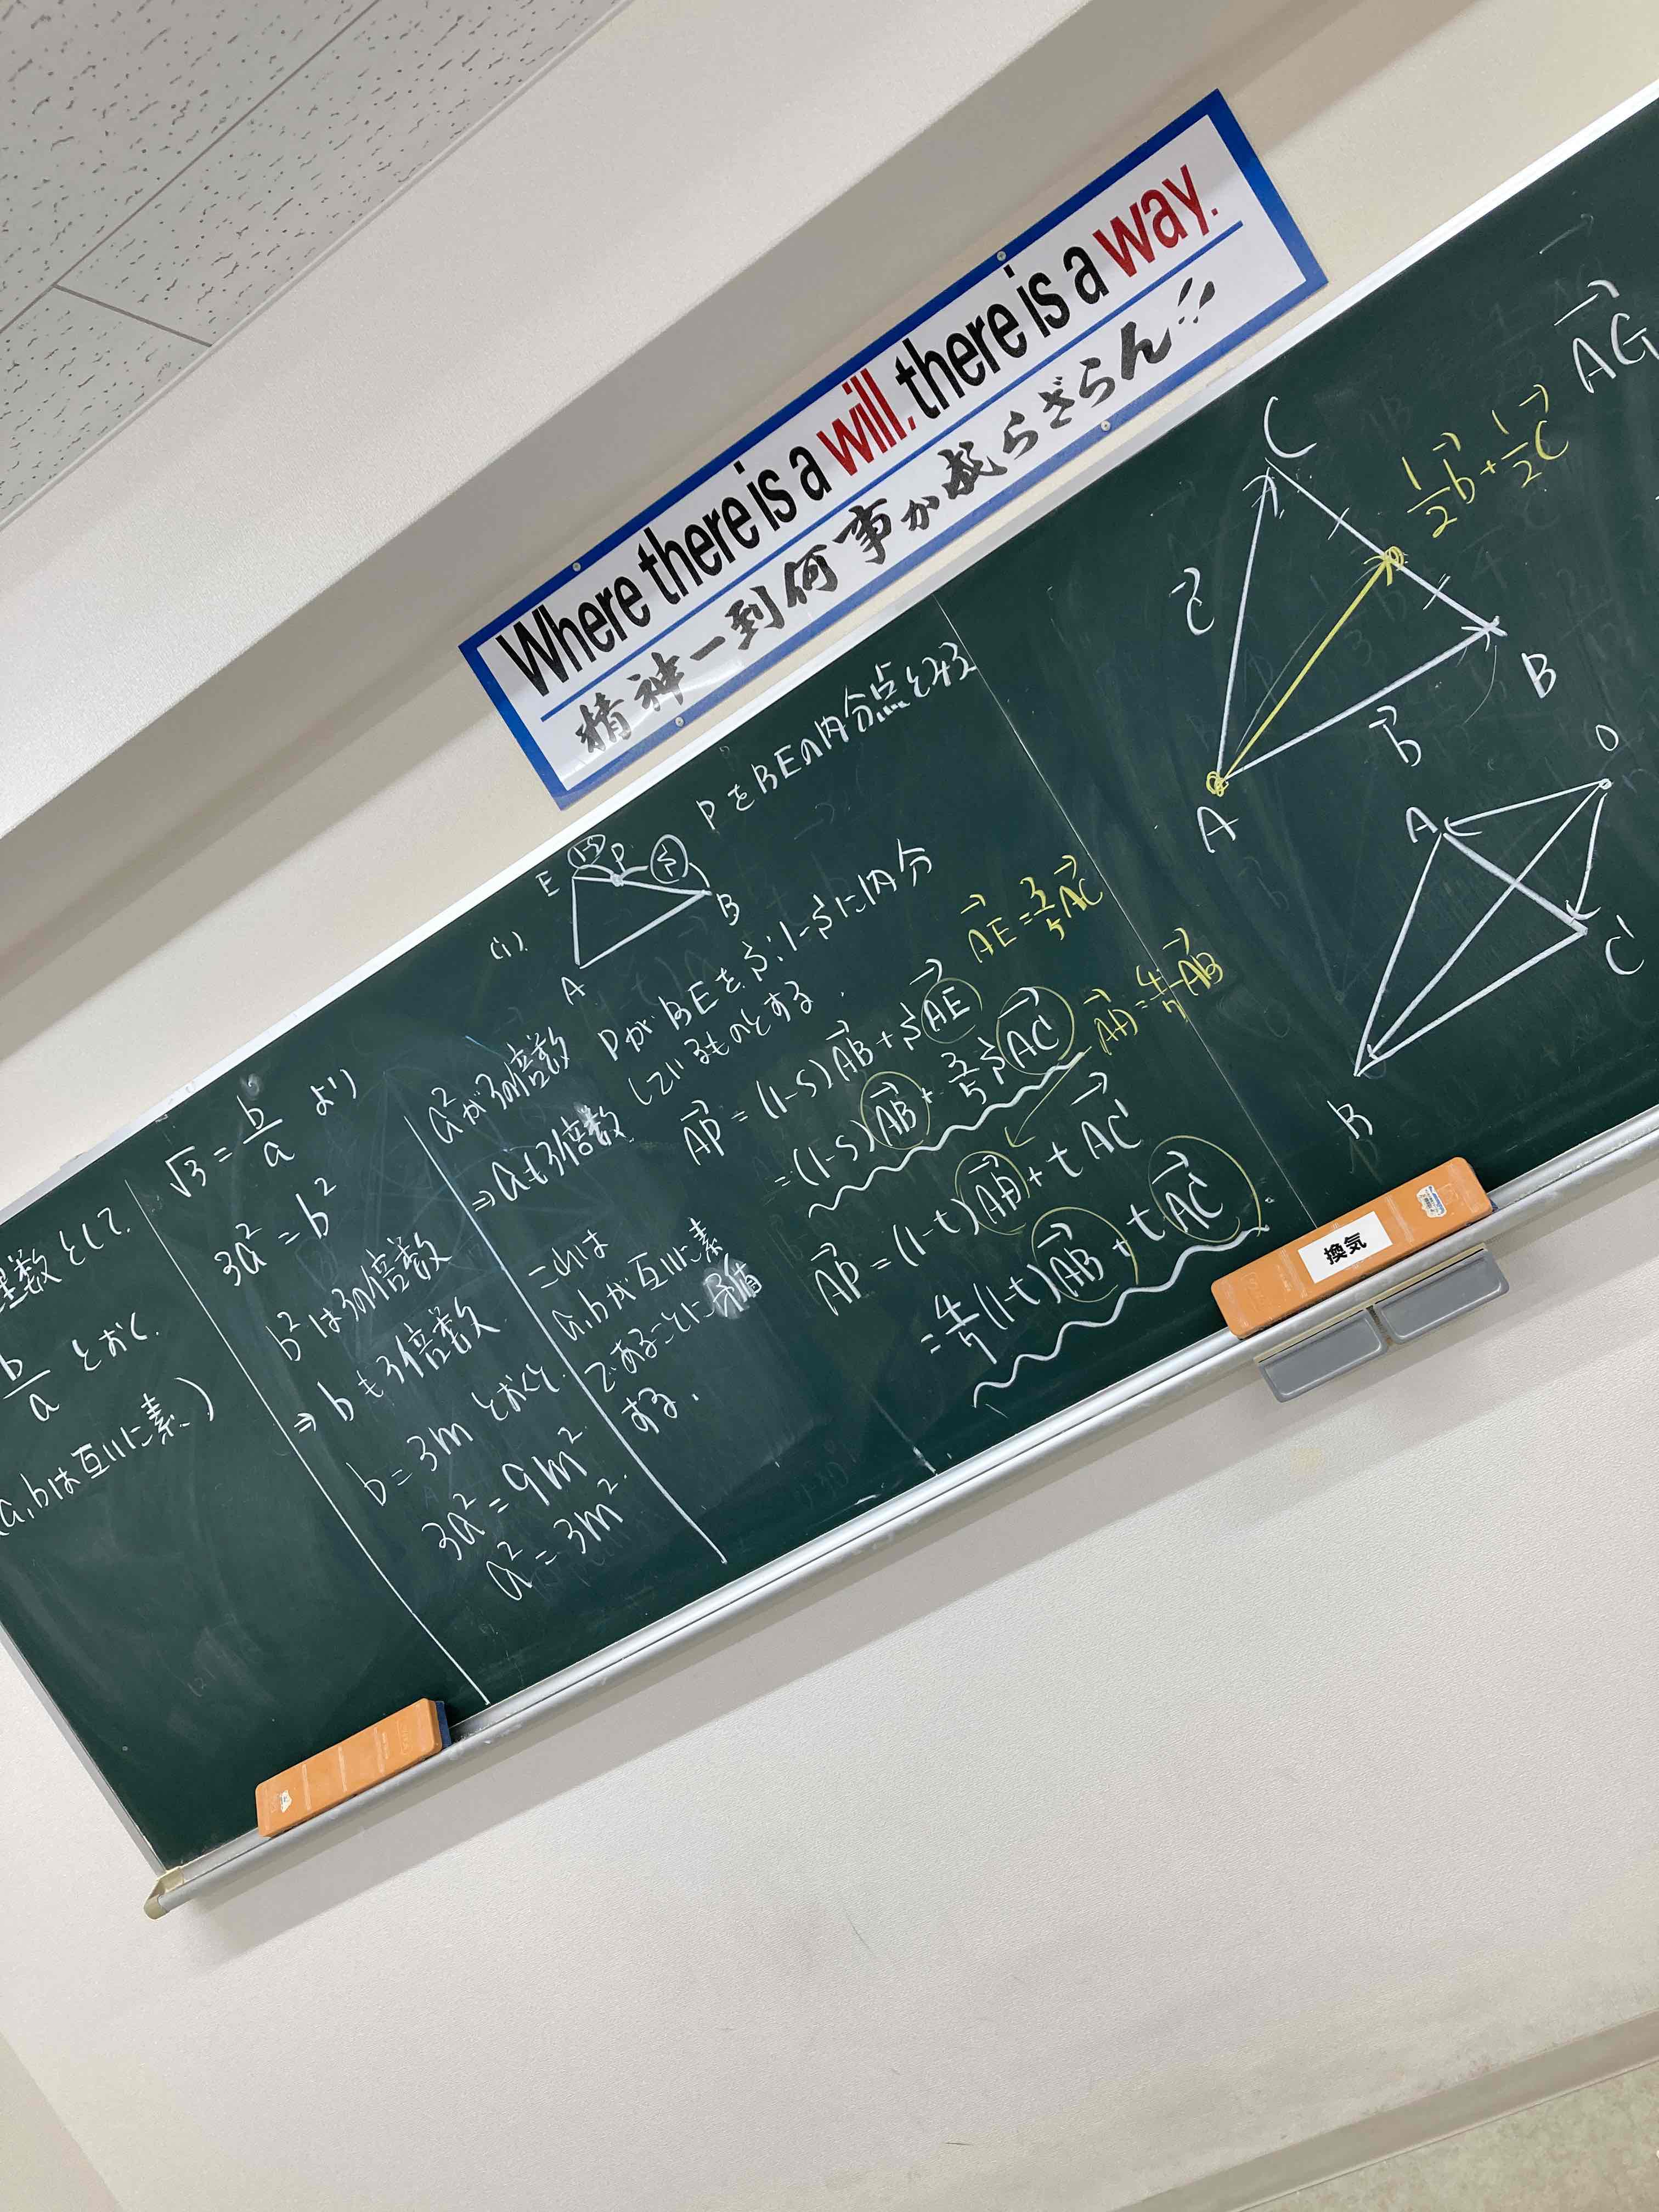 Where there is a will, there is a way.
精神一到何事か成らざらん!!
理数として.
b/a とおく.
(a,bは互いに素.)
√3 = b/a より
3a² = b²
b²は3の倍数
⇒ bも3の倍数.
b = 3m とおくと.
3a² = 9m²
a² = 3m².
a²が3の倍数
⇒ aも3の倍数.
これは
a,bが互いに素
であることに矛盾
する.
(i).
E
1-s
P
s
B
A
PをBEの内分点とみる
PがBEをs:1-sに内分
しているものとする.
AP→ = (1-s)AB→ + sAE→
AE→ = 3/5 AC→
= (1-s)AB→ + 3/5 sAC→
AD→ = 4/5 AB→
AP→ = (1-t)AD→ + tAC→
= 4/5 (1-t)AB→ + tAC→
AG→
C
1/2 b→ + 1/2 c→
c→
B
b→
A
O
A
C
B
換気